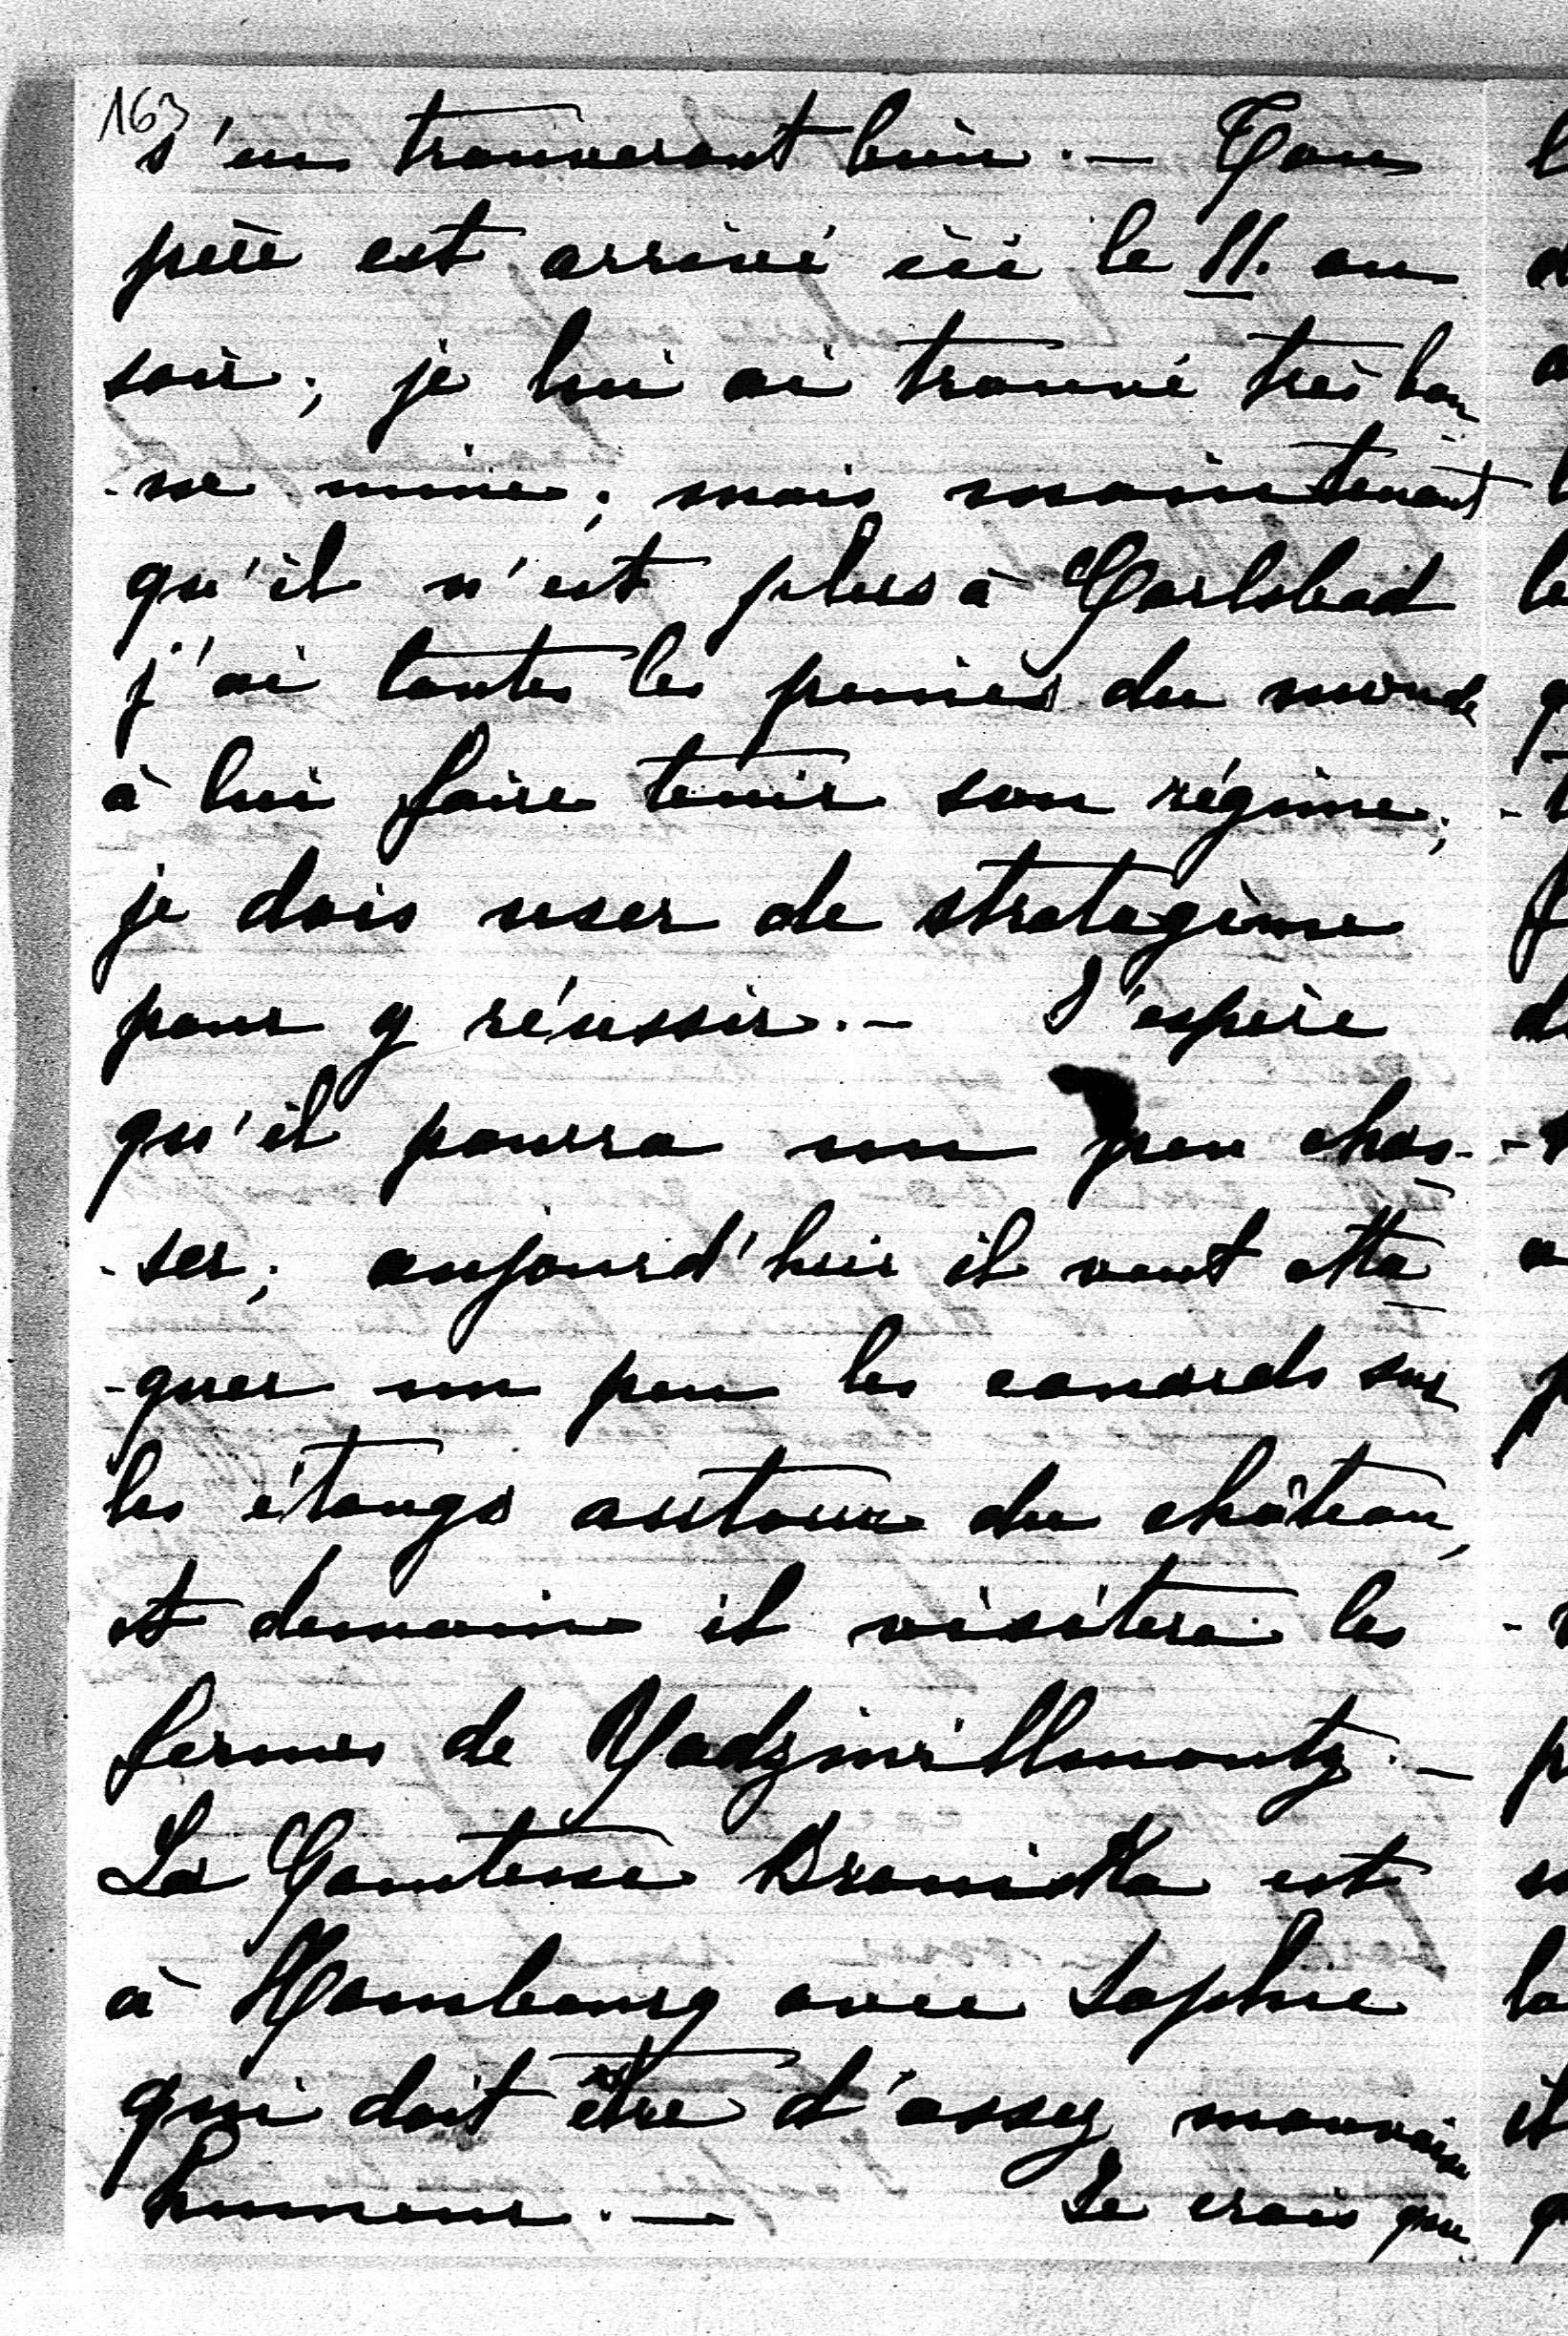 163
s'en trouveront bien. — Ton
père est arrivé ici le 11. au
soir; je lui ai trouvé très bon-
-ne mine; mais maintenant
qu'il n'est plus à Carlsbad
j'ai toutes les peines du monde
à lui faire tenir son régime;
je dois user de stratagème
pour y réussir. — J'espère
qu'il pourra un peu chas-
-ser; aujourd'hui il veut atta-
-quer un peu les canards sur
les étangs autour du château,
et demain il visitera les
fermes de Radziwillmontz. —
La Comtesse Branicka est
à Hombourg avec Sophie
qui doit être d'assez mauvaise
humeur. — Je crois que